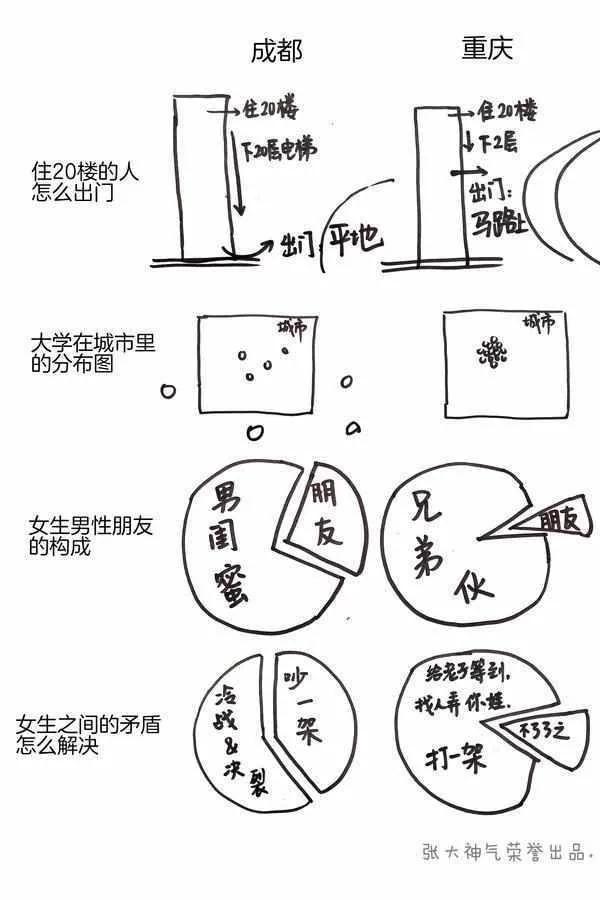 成都
重庆
住20楼的人
怎么出门
住20楼
下20层电梯
出门:平地
住20楼
下2层
出门:
马路上
大学在城市里
的分布图
城市
城市
女生男性朋友
的构成
男闺蜜
朋友
兄弟伙
朋友
女生之间的矛盾
怎么解决
冷战&决裂
吵一架
给老子等到,
找人弄你娃.
打一架
不了了之
张大神气荣誉出品.